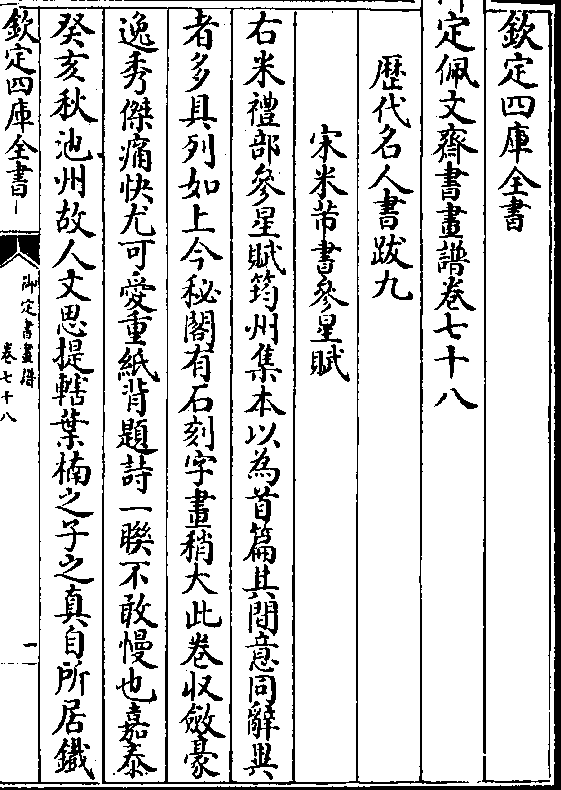 欽定四庫全書
御定佩文齋書畫譜卷七十八
歷代名人書跋九
宋米芾書參星賦
右米禮部參星賦筠州集本以為首篇其間意同辭異
者多具列如上今秘閣有石刻字畫稍大此卷収斂豪
逸秀傑痛快尤可愛重紙背題詩一聯不敢慢也嘉泰
癸亥秋池州故人文思提轄葉楠之子之真自所居鐵
欽定四庫全書
御定書畫譜
卷七十八
一